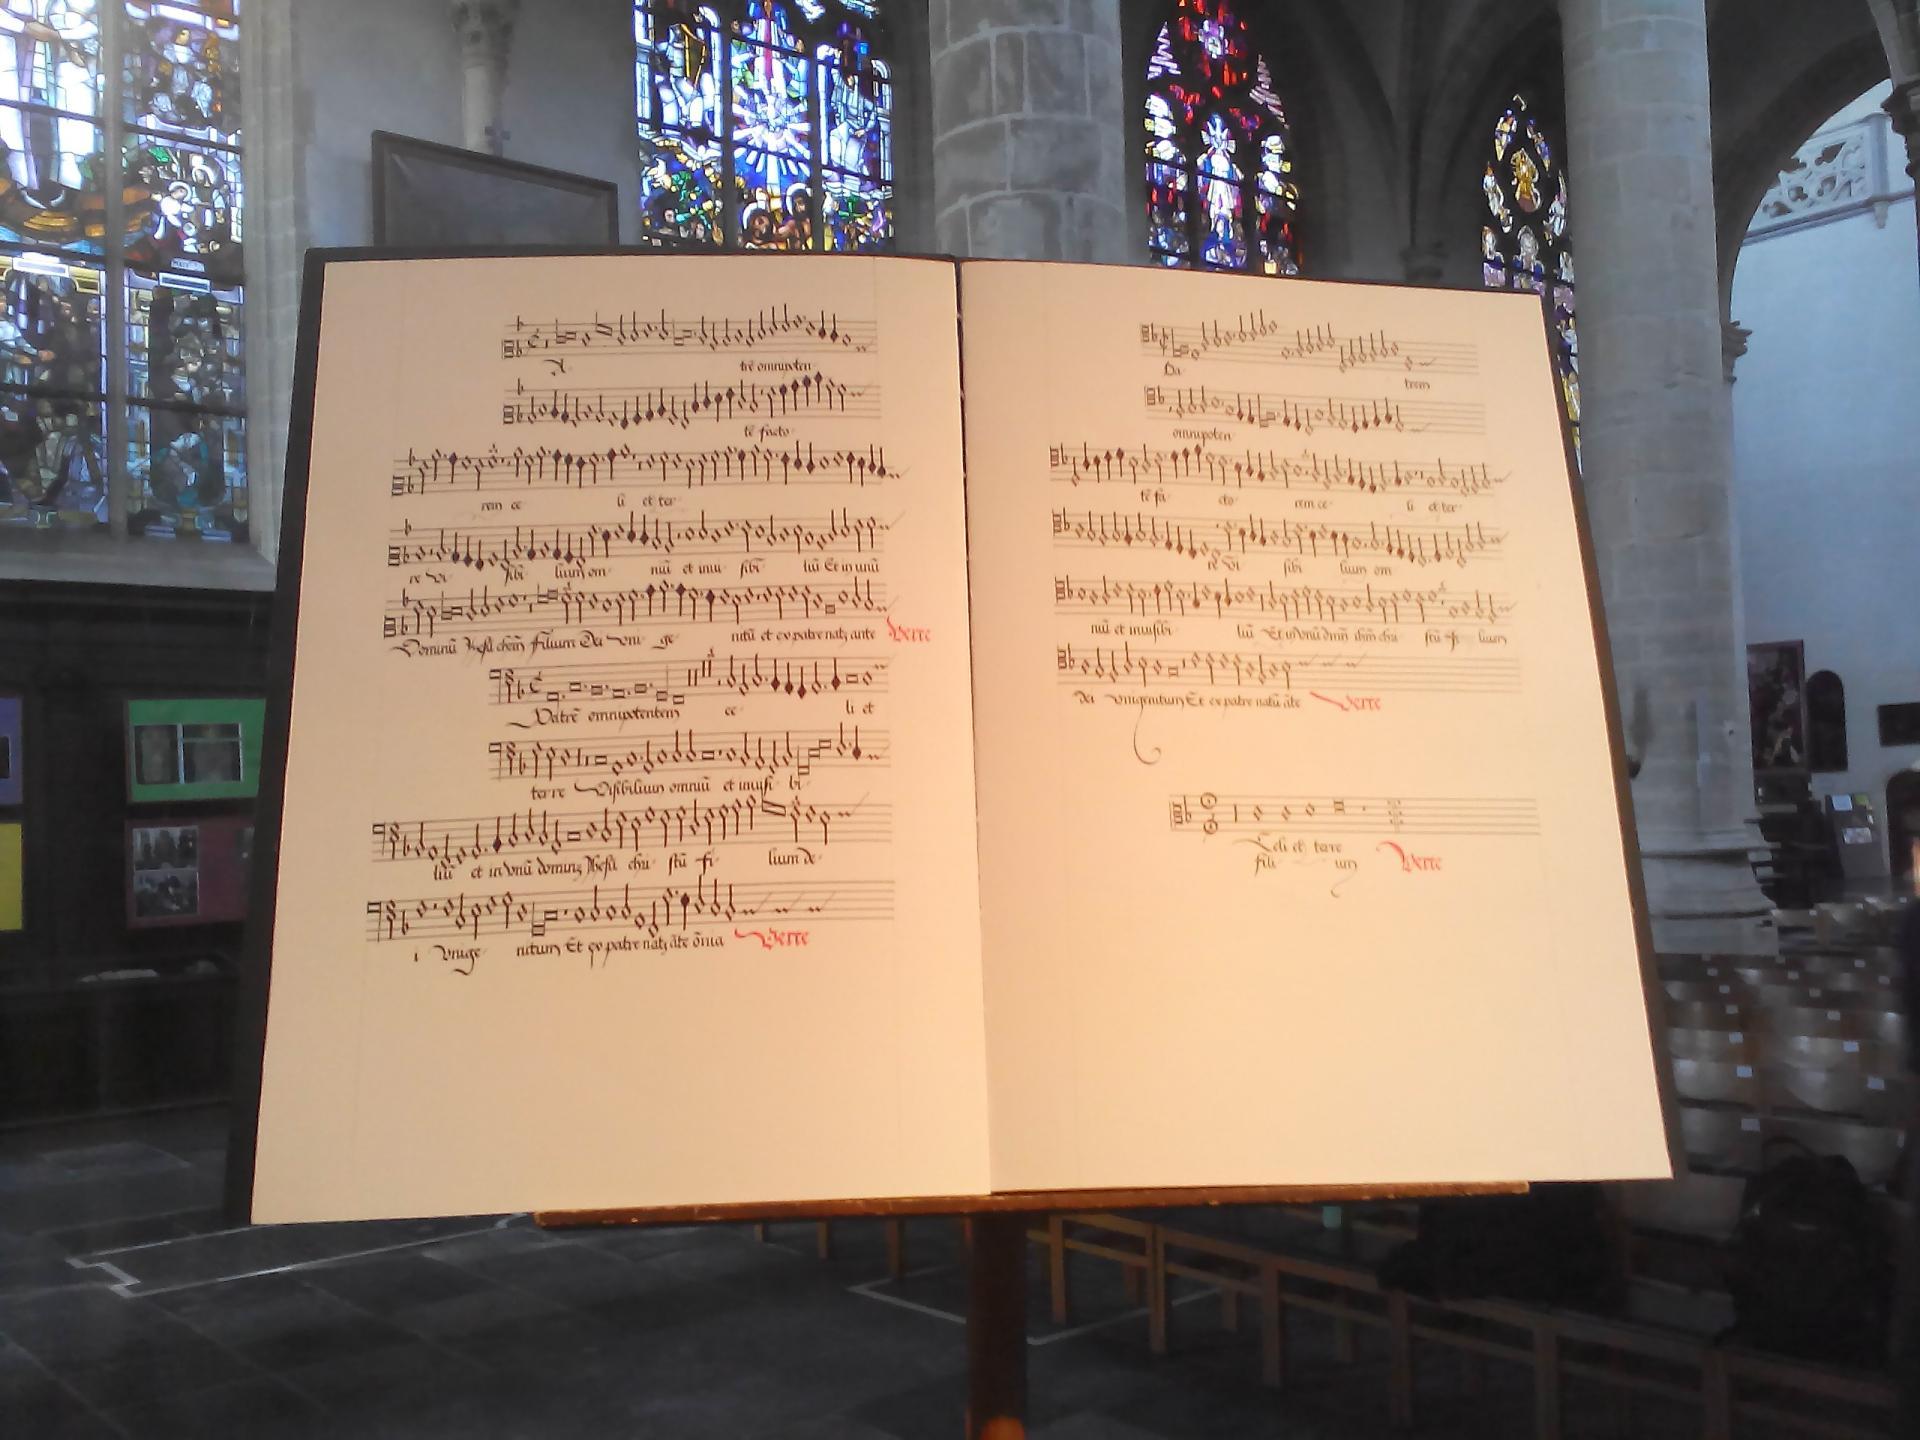 trē omnipoten
tē facto
rem ce li et ter
re vi sibi lium om niū et inui sibi liū Et in unū
Dominū Jhesū filium Dei vni ge nitū et ex patre natū ante Verte
Patrē omnipotentem ce li et
terre Visibilium omniū et inuisi bi
liū et in vnū dominū Jhesū chri stū fi lium de
i vnige nitum Et ex patre natū āte ōnia Verte
Pa trem
omnipoten
tē fa cto rem ce li et ter
re vi sibi lium om
niū et inuisibi liū Et in vnū dnm ihm chri stū fi lium
dei vnigenitum Et ex patre natū āte Verte
Celi et terre
fili um Verte